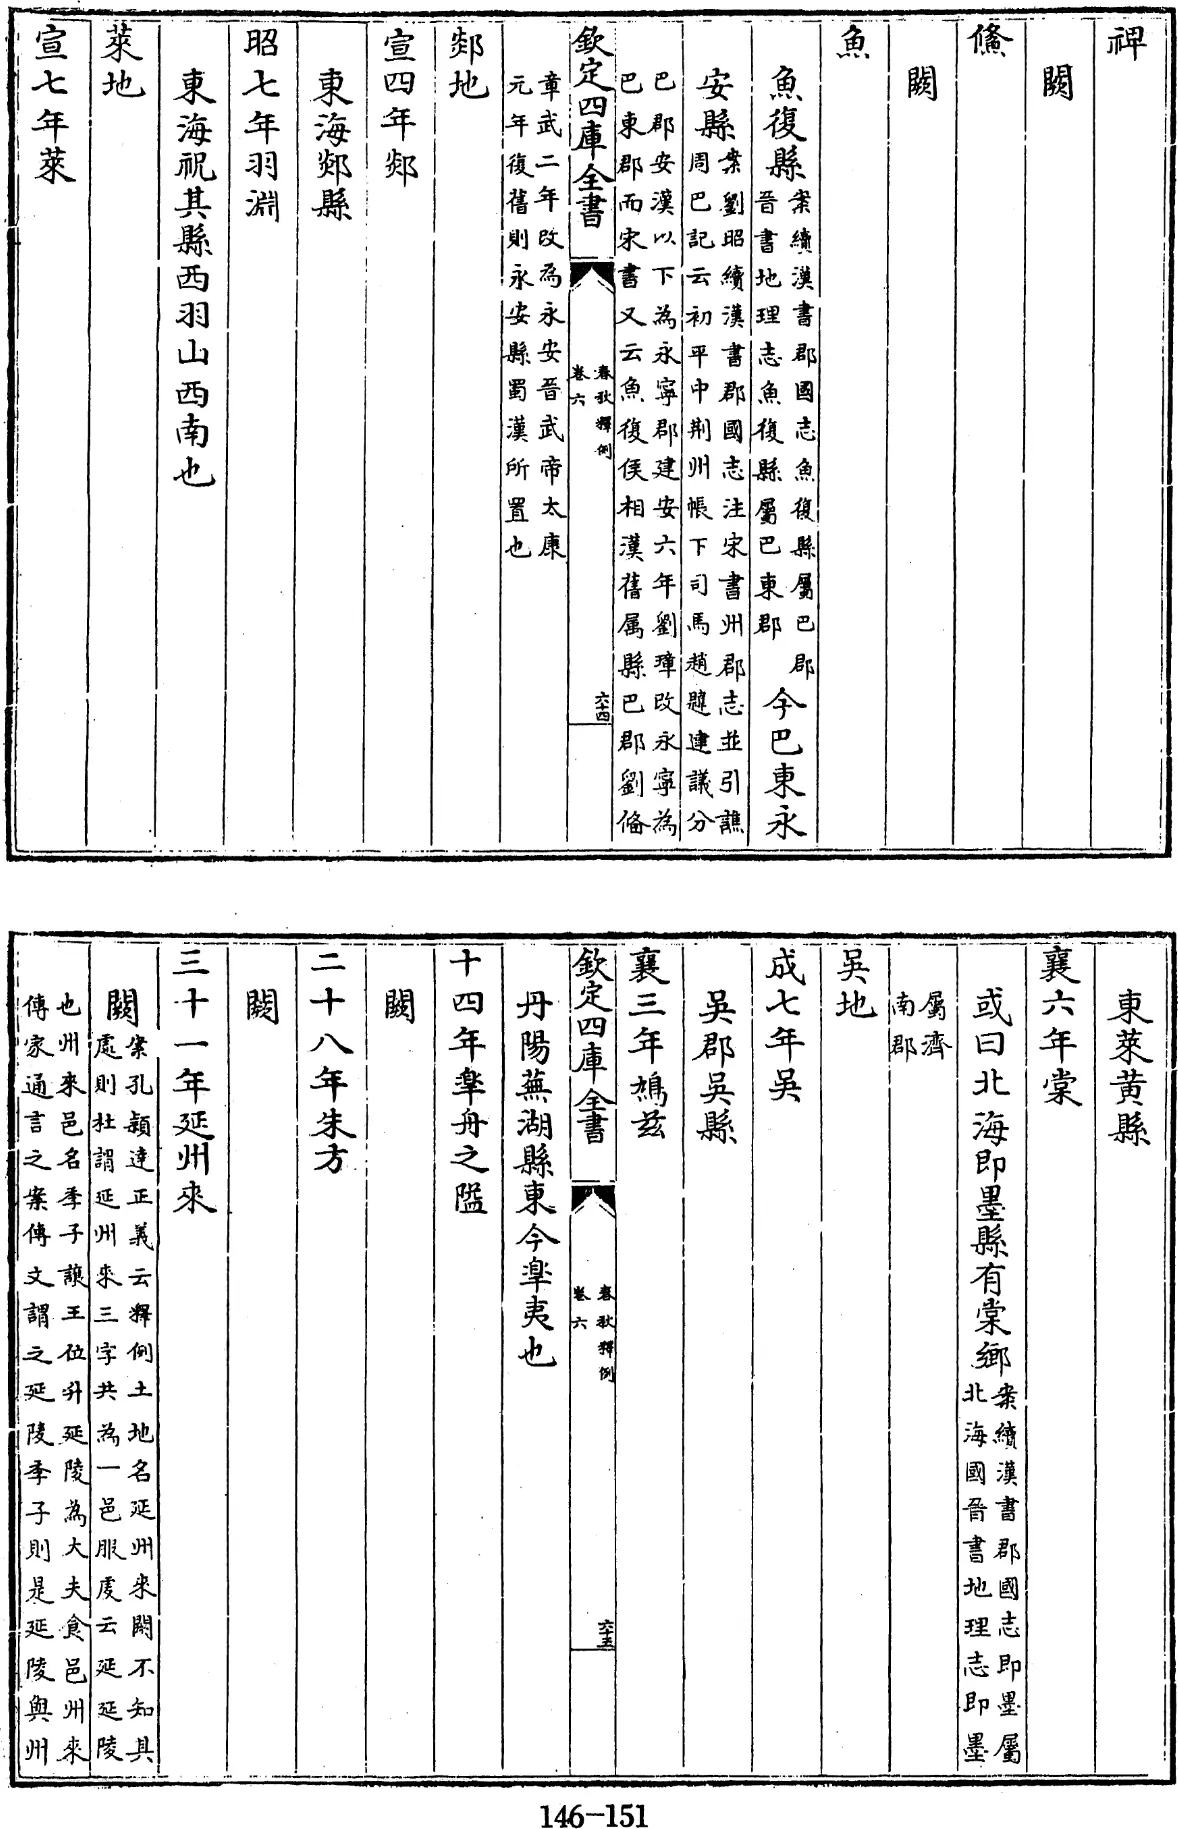 裨
闕
鯈
闕
魚
魚復縣案續漢書郡國志魚復縣屬巴郡晉書地理志魚復縣屬巴東郡今巴東永
安縣案劉昭續漢書郡國志注宋書州郡志並引譙周巴記云初平中荆州帳下司馬趙韙建議分
巴郡安漢以下為永寧郡建安六年劉璋改永寧為巴東郡而宋書又云魚復侯相漢舊属縣巴郡劉偹
欽定四庫全書
春秋釋例
卷六
六十四
章武二年改為永安晉武帝太康元年復舊則永安縣蜀漢所置也
郯地
宣四年郯
東海郯縣
昭七年羽淵
東海祝其縣西羽山西南也
萊地
宣七年萊
東萊黄縣
襄六年棠
或曰北海即墨縣有棠鄉案續漢書郡國志即墨屬北海國晉書地理志即墨
屬濟南郡
吳地
成七年吳
吳郡吳縣
襄三年鳩茲
欽定四庫全書
春秋釋例
卷六
六十五
丹陽蕪湖縣東今臯夷也
十四年臯舟之隘
闕
二十八年朱方
闕
三十一年延州來
闕案孔穎達正義云釋例土地名延州來闕不知其處則杜謂延州來三字共為一邑服虔云延延陵
也州來邑名季子讓王位升延陵為大夫食邑州來傳家通言之案傳文謂之延陵季子則是延陵與州
146-151